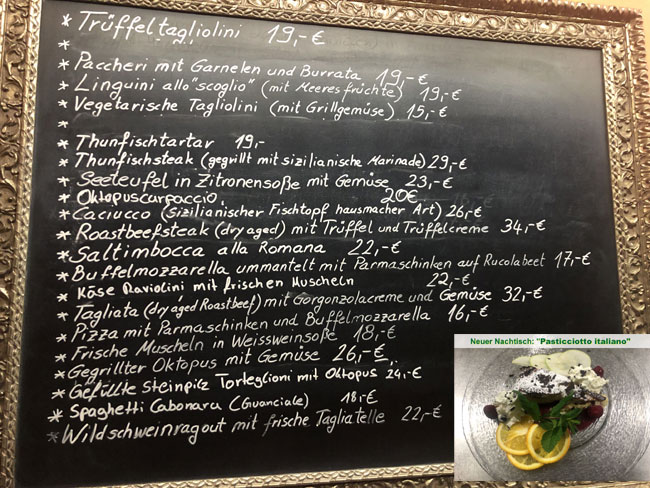 * Trüffeltagliolini 19,-€
*
* Paccheri mit Garnelen und Burrata 19,-€
* Linguini allo "scoglio" (mit Meeresfrüchte) 19,-€
* Vegetarische Tagliolini (mit Grillgemüse) 15,-€
*
* Thunfischtartar 19,-
* Thunfischsteak (gegrillt mit sizilianische Marinade) 29,-€
* Seeteufel in Zitronensoße mit Gemüse 23,-€
* Oktopuscarpaccio 20€
* Caciucco (sizilianischer Fischtopf hausmacher Art) 26,-€
* Roastbeefsteak (dry aged) mit Trüffel und Trüffelcreme 34,-€
* Saltimbocca alla Romana 22,-€
* Buffelmozzarella ummantelt mit Parmaschinken auf Rucolabeet 17,-€
* Käse Raviolini mit frischen Muscheln 22,-€
* Tagliata (dry aged Roastbeef) mit Gorgonzolacreme und Gemüse 32,-€
* Pizza mit Parmaschinken und Buffelmozzarella 16,-€
* Frische Muscheln in Weissweinsoße 18,-€
* Gegrillter Oktopus mit Gemüse 26,-€
* Gefüllte Steinpilz Torteglioni mit Oktopus 24,-€
* Spaghetti Cabonara (Guanciale) 18,-€
* Wildschweinragout mit frische Tagliatelle 22,-€
Neuer Nachtisch: "Pasticciotto italiano"